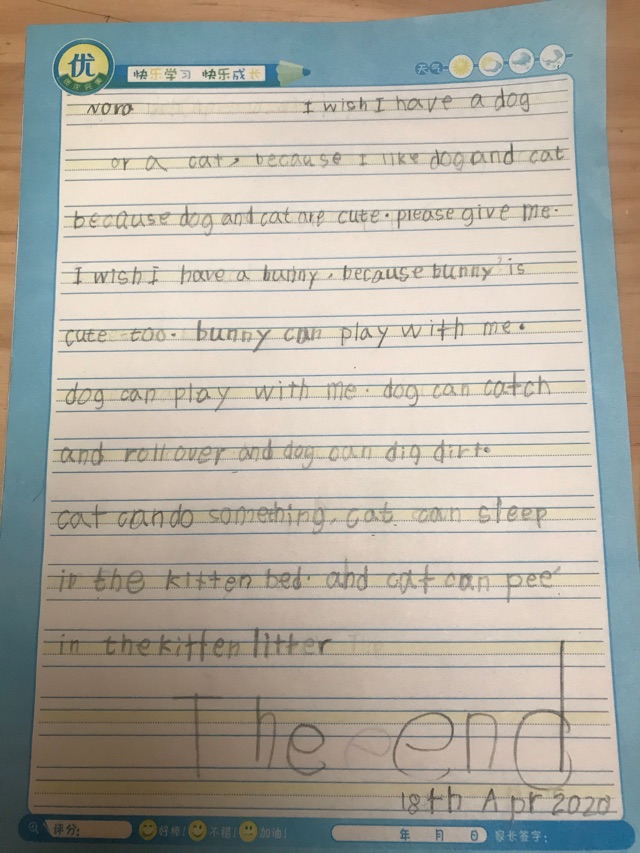 优
快乐学习 快乐成长
天气
Nora I wish I have a dog
or a cat, because I like dog and cat
because dog and cat are cute. please give me.
I wish I have a bunny, because bunny is
cute too. bunny can play with me.
dog can play with me. dog can catch
and roll over and dog can dig dirt.
cat can do something, cat can sleep
in the kitten bed. and cat can pee
in the kitten litter
The end
18th Apr 2020
评分: 好棒! 不错! 加油! 年 月 日 家长签字: